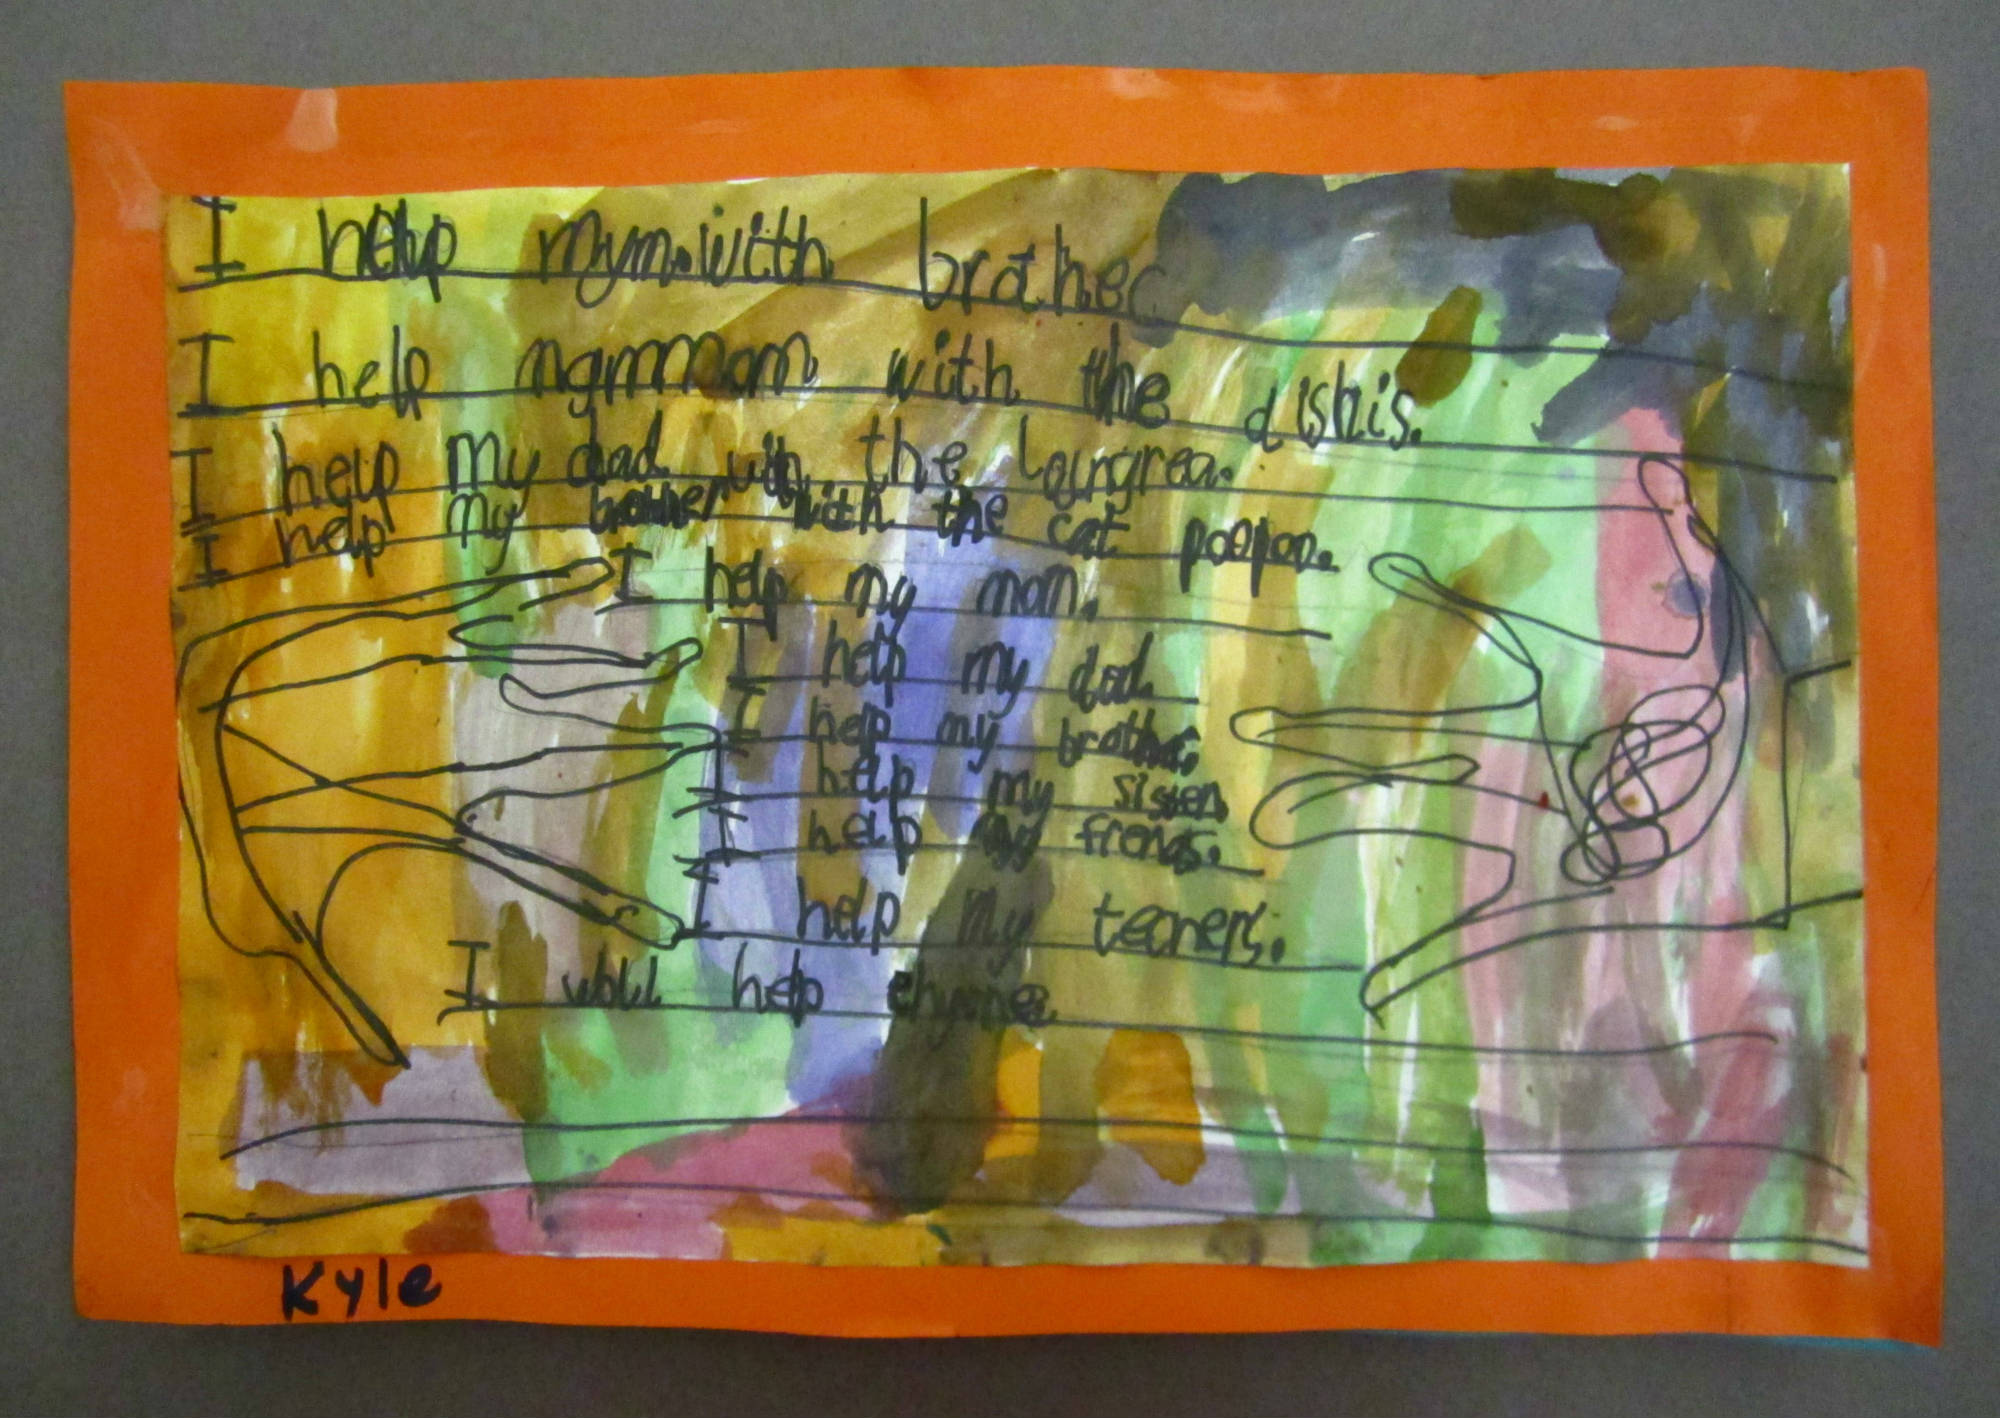 I help mym.with brother
I help mom with the dishis.
I help my dad with the
I help my brother with the cat poopoo.
I help my mom.
I help my dad.
I help my brother.
I help my sister.
I help my frends.
I help my techers.
I woll help
Kyle